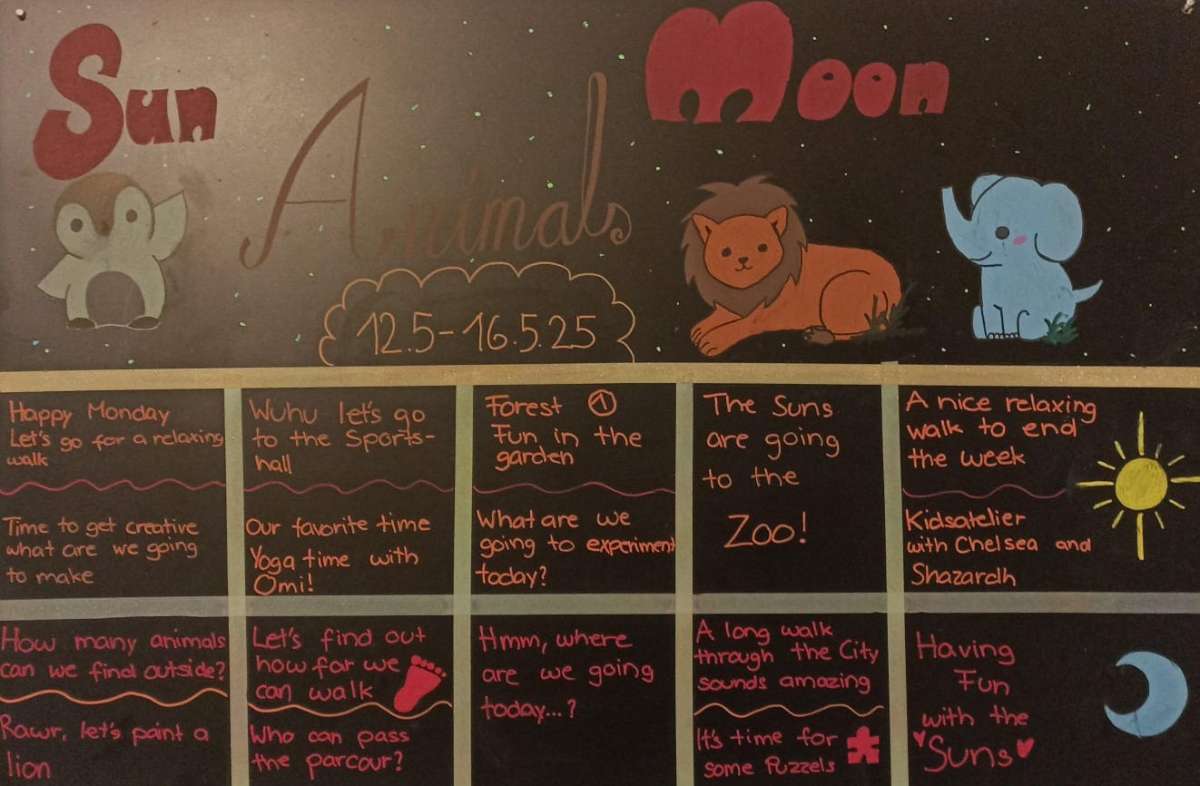 Sun
Moon
Animals
12.5-16.5.25
Happy Monday
Let's go for a relaxing
walk
Time to get creative
what are we going
to make
Wuhu let's go
to the Sports-
hall
Our favorite time
Yoga time with
Omi!
Forest 1
Fun in the
garden
What are we
going to experiment
today?
The Suns
are going
to the
Zoo!
A nice relaxing
walk to end
the week
Kidsatelier
with Chelsea and
Shazardh
How many animals
can we find outside?
Rawr, let's paint a
lion
Let's find out
how far we
can walk
Who can pass
the parcour?
Hmm, where
are we going
today...?
A long walk
through the City
sounds amazing
It's time for
some Puzzels
Having
Fun
with the
Suns